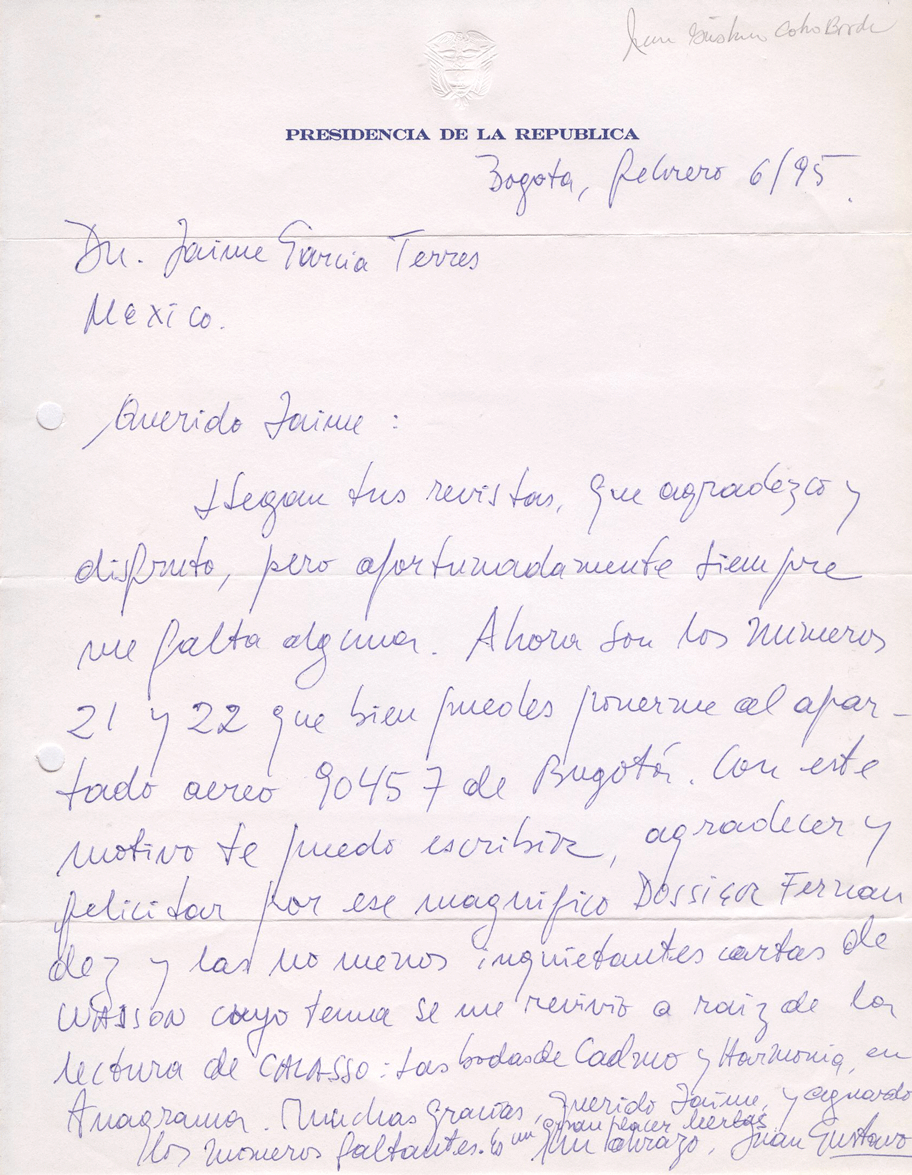 Juan Gustavo Cobo Borda
PRESIDENCIA DE LA REPUBLICA
Bogota, febrero 6/95.
Dr. Jaime Garcia Terres
Mexico.
Querido Jaime:
Llegan tus revistas, que agradezco y
disfruto, pero afortunadamente siempre
me falta alguna. Ahora son los números
21 y 22 que bien puedes ponerme al apar-
tado aereo 90457 de Bogotá. Con este
motivo te puedo escribir, agradecer y
felicitar por ese magnífico Dossier Fernan
dez y las no menos inquietantes cartas de
WASSON cuyo tema se me revivió a raiz de la
lectura de CALASSO: Las bodas de Cadmo y Harmonia, en
Anagrama. Muchas gracias, querido Jaime, y aguardo
gran placer
los números faltantes. un Un abrazo, Juan Gustavo